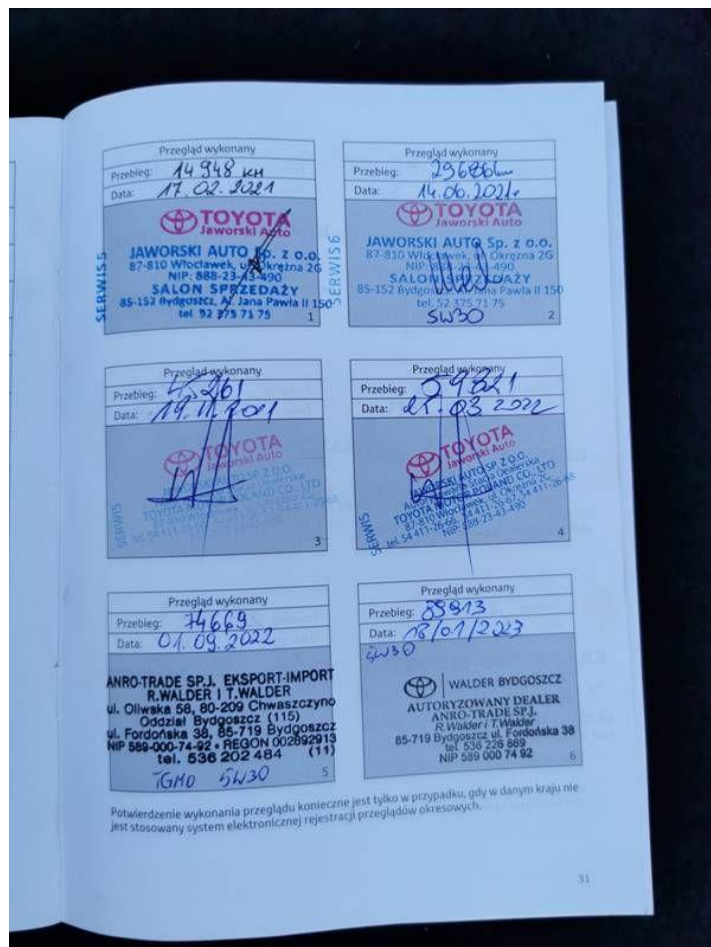 Przegląd wykonany
Przebieg: 14 948 km
Data: 17.02.2021
TOYOTA
Jaworski Auto
SERWIS 5
JAWORSKI AUTO Sp. z o.o.
87-810 Włocławek, ul. Okrężna 2G
NIP: 888-23-43-490
SALON SPRZEDAŻY
85-152 Bydgoszcz, Al. Jana Pawła II 150
tel. 52 375 71 75
1
Przegląd wykonany
Przebieg:
Data: 14.06.2021r
TOYOTA
Jaworski Auto
SERWIS 6
JAWORSKI AUTO Sp. z o.o.
87-810 Włocławek, ul. Okrężna 2G
NIP: 888-23-43-490
SALON SPRZEDAŻY
85-152 Bydgoszcz, Al. Jana Pawła II 150
tel. 52 375 71 75
5W30
2
Przegląd wykonany
Przebieg:
Data: 19.11.2021
TOYOTA
Jaworski Auto
SERWIS
3
Przegląd wykonany
Przebieg: 59821
Data: 03 2022
TOYOTA
Jaworski Auto
JAWORSKI AUTO SP. Z O.O.
Autoryzowana Stacja Dealerska
TOYOTA MOTOR POLAND CO., LTD
87-810 Włocławek, ul. Okrężna 2G
tel. 54 411-26-66, 54 411-26-67, 54 411-26-68
NIP 888-23-43-490
SERWIS
4
Przegląd wykonany
Przebieg: 74669
Data: 01.09.2022
ANRO-TRADE SP.J. EKSPORT-IMPORT
R.WALDER I T.WALDER
ul. Oliwska 58, 80-209 Chwaszczyno
Oddział Bydgoszcz (115)
ul. Fordońska 38, 85-719 Bydgoszcz
NIP 589-000-74-92 • REGON 002892913
tel. 536 202 484 (11)
TGMO 5W30
5
Przegląd wykonany
Przebieg: 89913
Data: 18/01/2023
5W30
WALDER BYDGOSZCZ
AUTORYZOWANY DEALER
ANRO-TRADE SP.J.
R.Walder i T.Walder
85-719 Bydgoszcz ul. Fordońska 38
tel. 536 226 869
NIP 589 000 74 92
6
Potwierdzenie wykonania przeglądu konieczne jest tylko w przypadku, gdy w danym kraju nie
jest stosowany system elektronicznej rejestracji przeglądów okresowych.
31